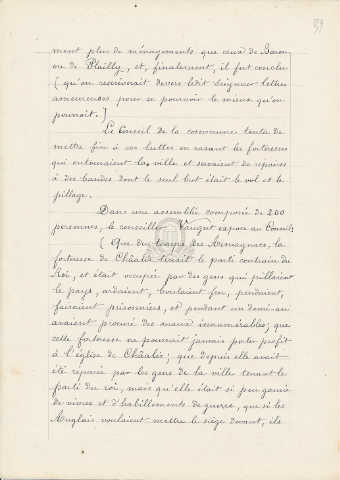 39
ment plus de ménagements que ceux de Baron
ou de Plailly, et, finalement, il fut conclu
( qu'on rescriverait devers ledit seigneur lettres
amoureuses pour se pourvoir le mieux qu'on
pourrait. )
Le Conseil de la commune tenta de
mettre fin à ces luttes en rasant les forteresses
qui entouraient la ville et servaient de repaires
à des bandes dont le seul but était le vol et le
pillage.
Dans une assemblée composée de 200
personnes, le conseiller exposa au Conseil:
( Que du temps des Armagnacs, la
forteresse de Châalis tenait le parti contraire du
Roi, et était occupée par des gens qui pillaient
le pays, ardaient, boutaient feu, pendaient,
faisaient prisonniers, et pendant un demi-an
avaient procuré des maux innumérables; que
cette forteresse ne pourrait jamais porter profit
à l'église de Châalis; que depuis elle avait
été réparée par les gens de la ville tenant le
parti du roi, mais qu'elle était si peu garnie
de vivres et d'habillements de guerre, que si les
Anglais voulaient mettre le siège devant, ils